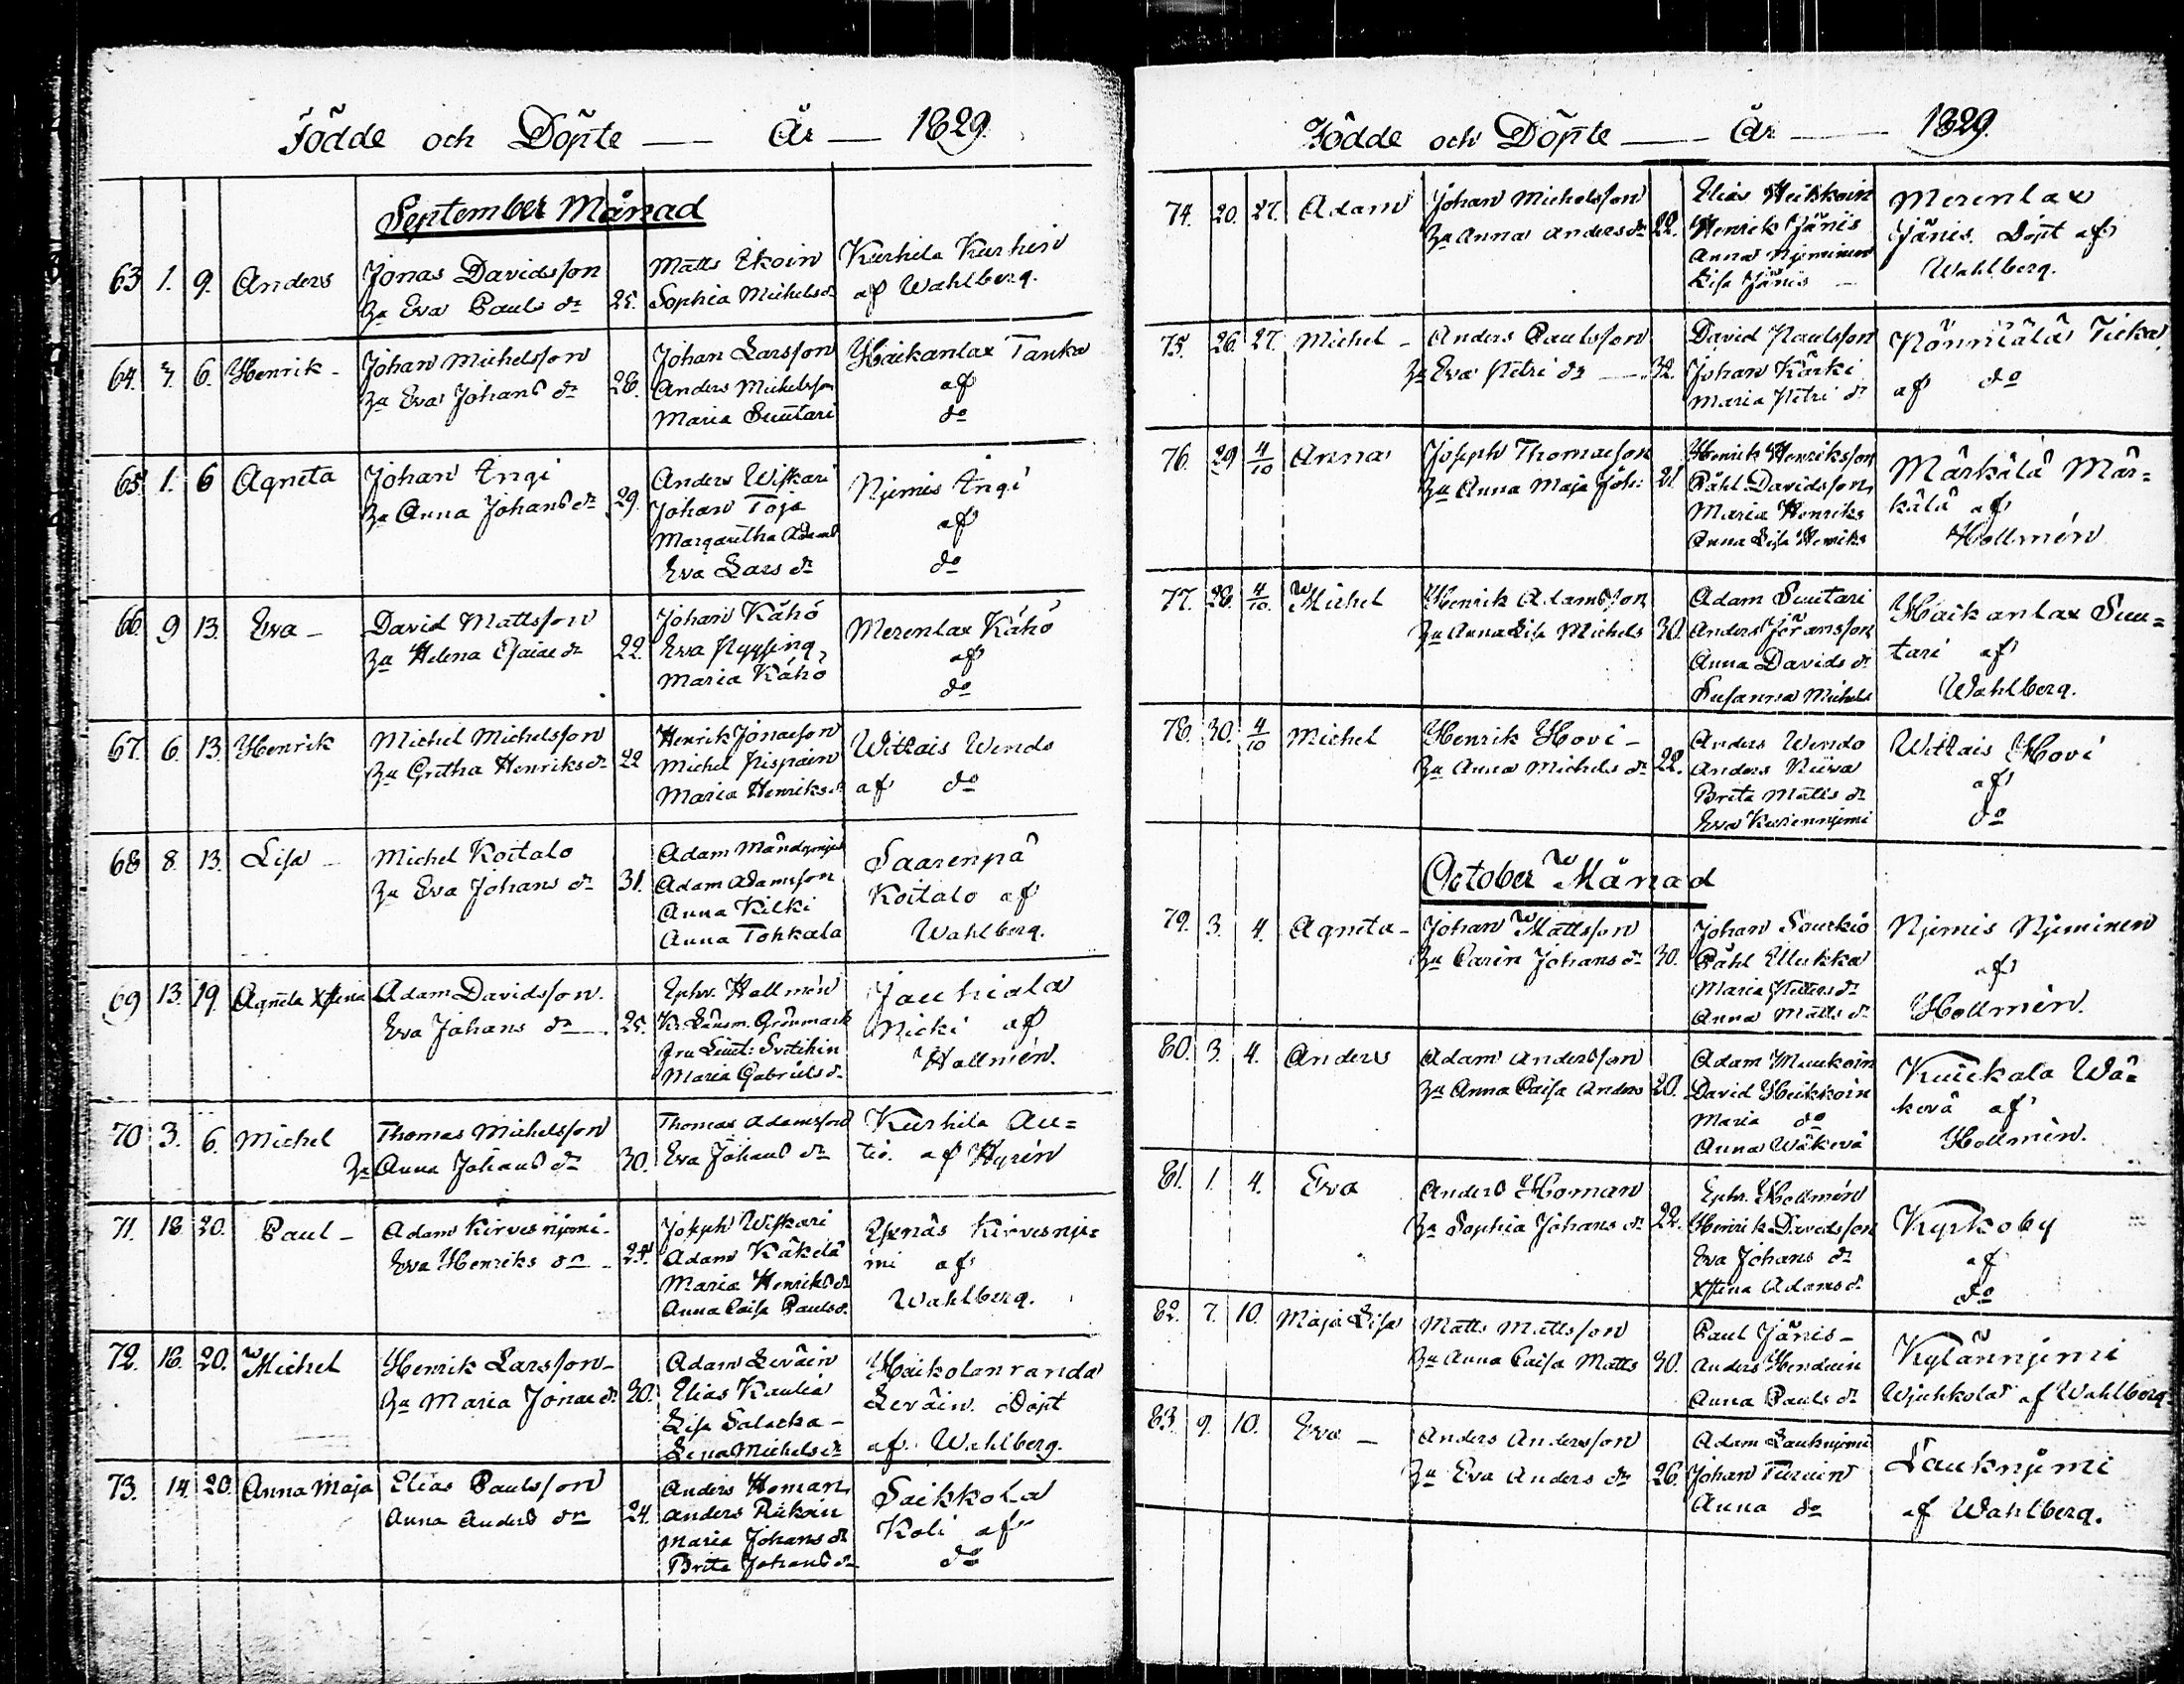 Födde och Döpte — År — 1829.
September Månad
63 1. 9. Anders Jonas Davidsson Matts Ikoin Kurhila Kurhin
Hu Eva Pauls dr 25. Sophia Michelsdr af Wahlberg.
64. 7. 6. Henrik - Johan Michelsson Johan Larsson Haikanlax Tanka
Hu Eva Johans dr 28. Anders Michelsson af
Maria Suutari do
65. 1. 6 Agneta Johan Ängi Anders Wiskari Njemis Ängi
Hu Anna Johans dr 29. Johan Toja af
Margaretha Adams do
Eva Lars dr
66. 9 13. Eva - David Mattsson Johan Kähö Merenlax Kähö
Hu Helena Esaiae dr 22. Eva Pyssing af
Maria Kähö do
67. 6. 13. Henrik Michel Michelsson Henrik Jonasson Witsais Wendo
Hu Gretha Henriksdr 22 Michel Pispain af do
Maria Henriksdr
68 8. 13. Lisa - Michel Koitalo Adam Saarenpä
Hu Eva Johans dr 31. Adam Adamsson Koitalo af
Anna Kilki Wahlberg.
Anna Tohkala
69 13. 19. Agneta Xstina Adam Davidsson. Ephr. Hollmén Jauhiala
Eva Johans dr 25. Kr. Länsm. Grönmark Nicki af
Fru Lieut: Hollmén.
Maria Gabriels dr
70 3. 6. Michel Thomas Michelsson Thomas Adamsson Kurhila Au=
Hu Anna Johans dr 30. Eva Johans dr tio. af Hyrén
71. 18. 20. Paul - Adam Kirvesnjemi. Joseph Wiskari Esenäs Kirvesnje=
Eva Henriks dr - 24. Adam Käkelä mi af
Maria Henriks dr Wahlberg.
Anna Caisa Pauls d.
72. 16. 20. Michel Henrik Larsson - Adam Leväin Haikolanranda
Hu Maria Jonae dr 30. Elias Kaulia Leväin. Döpt
Lisa Salacka - af. Wahlberg.
Lena Michels dr
73. 14. 20. Anna Maja Elias Paulsson Anders Homan, Saikkola
Anna Anders dr 24. Anders Rikoin Koli af
Maria Johans dr do
Brita Johans dr
Födde och Döpte — År — 1829.
74. 20. 27. Adam Johan Michelsson Elias Heikkoin Merenlax
Hu Anna Anders dr 22. Henrik Jänis Jänis. Döpt af
Anna Njeminen Wahlberg.
Lisa Jänis -
75. 26. 27. Michel - Anders Paulsson David Paulsson Pönniälä Ticka
Hu Eva Petri dr — 32. Johan Kärki af do
Maria Petri dr
76. 29 4/10 Anna Joseph Thomasson Henrik Henriksson Märkälä Mär=
Hu Anna Maja Joh: 21. Påhl Davidsson, kälä af
Maria Henriks Hollmén
Anna Lisa Henriks
77. 28. 4/10. Michel Henrik Adamsson Adam Suutari Haikanlax Suu=
Hu Anna Lisa Michels 30. Anders Jöransson tari af
Anna Davids dr Wahlberg.
Susanna Michels
78. 30. 4/10 Michel Henrik Hovi - Anders Wendo Witsais Hovi
Hu Anna Michels dr 22. Anders Niiva af
Brita Matts dr do
Eva
October Månad
79. 3. 4. Agneta - Johan Mattsson Johan Sourkio Njemis Njeminen
Hu Carin Johans dr 30. Påhl Ellukka af
Maria Petters dr Hollmén.
Anna Matts dr
80. 3. 4. Anders Adam Andersson Adam Muukoin Kuickala Wä=
Hu Anna Caisa Anders 20. David Heikkoin kevä af
Maria do Hollmén.
Anna Wäkevä
81. 1. 4. Eva Anders Homan Ephr. Hollmén Kyrkoby
Hu Sophia Johans dr 22. Henrik Davidsson af
Eva Johans dr do
Xstina Adams dr
82. 7. 10. Maja Lisa Matts Mattsson Paul Jänis - Kylännjemi
Hu Anna Caisa Matts 30. Anders Wjuhkola af Wahlberg
Anna Pauls dr
83. 9. 10. Eva — Anders Andersson Adam Lauknjemi Lauknjemi
Hu Eva Anders dr 26. Johan Turuin af Wahlberg.
Anna do